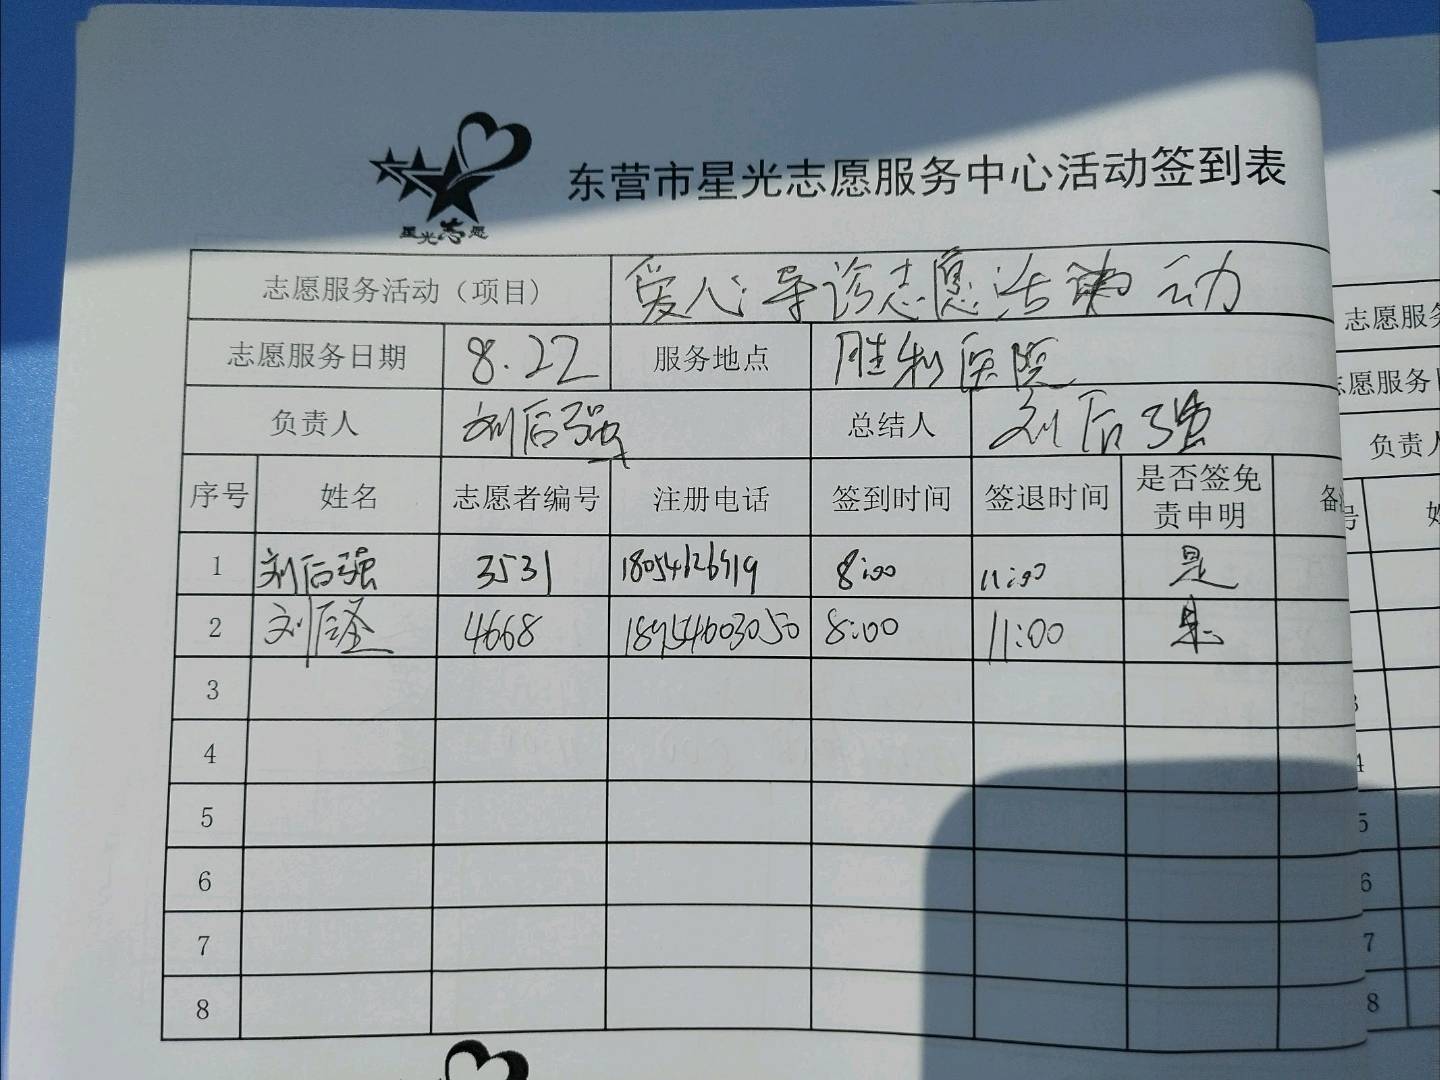 东营市星光志愿服务中心活动签到表
星光志愿
志愿服务活动（项目） 爱心导诊志愿活动
志愿服务日期 8.22 服务地点 胜利医院
负责人 刘后强 总结人 刘后强
序号 姓名 志愿者编号 注册电话 签到时间 签退时间 是否签免责申明 备
1 刘后强 3531 8:00 11:00 是
2 4668 18954603050 8:00 11:00 是
3
4
5
6
7
8
志愿服务
志愿服务日
负责人
号 姓
3
4
5
6
7
8